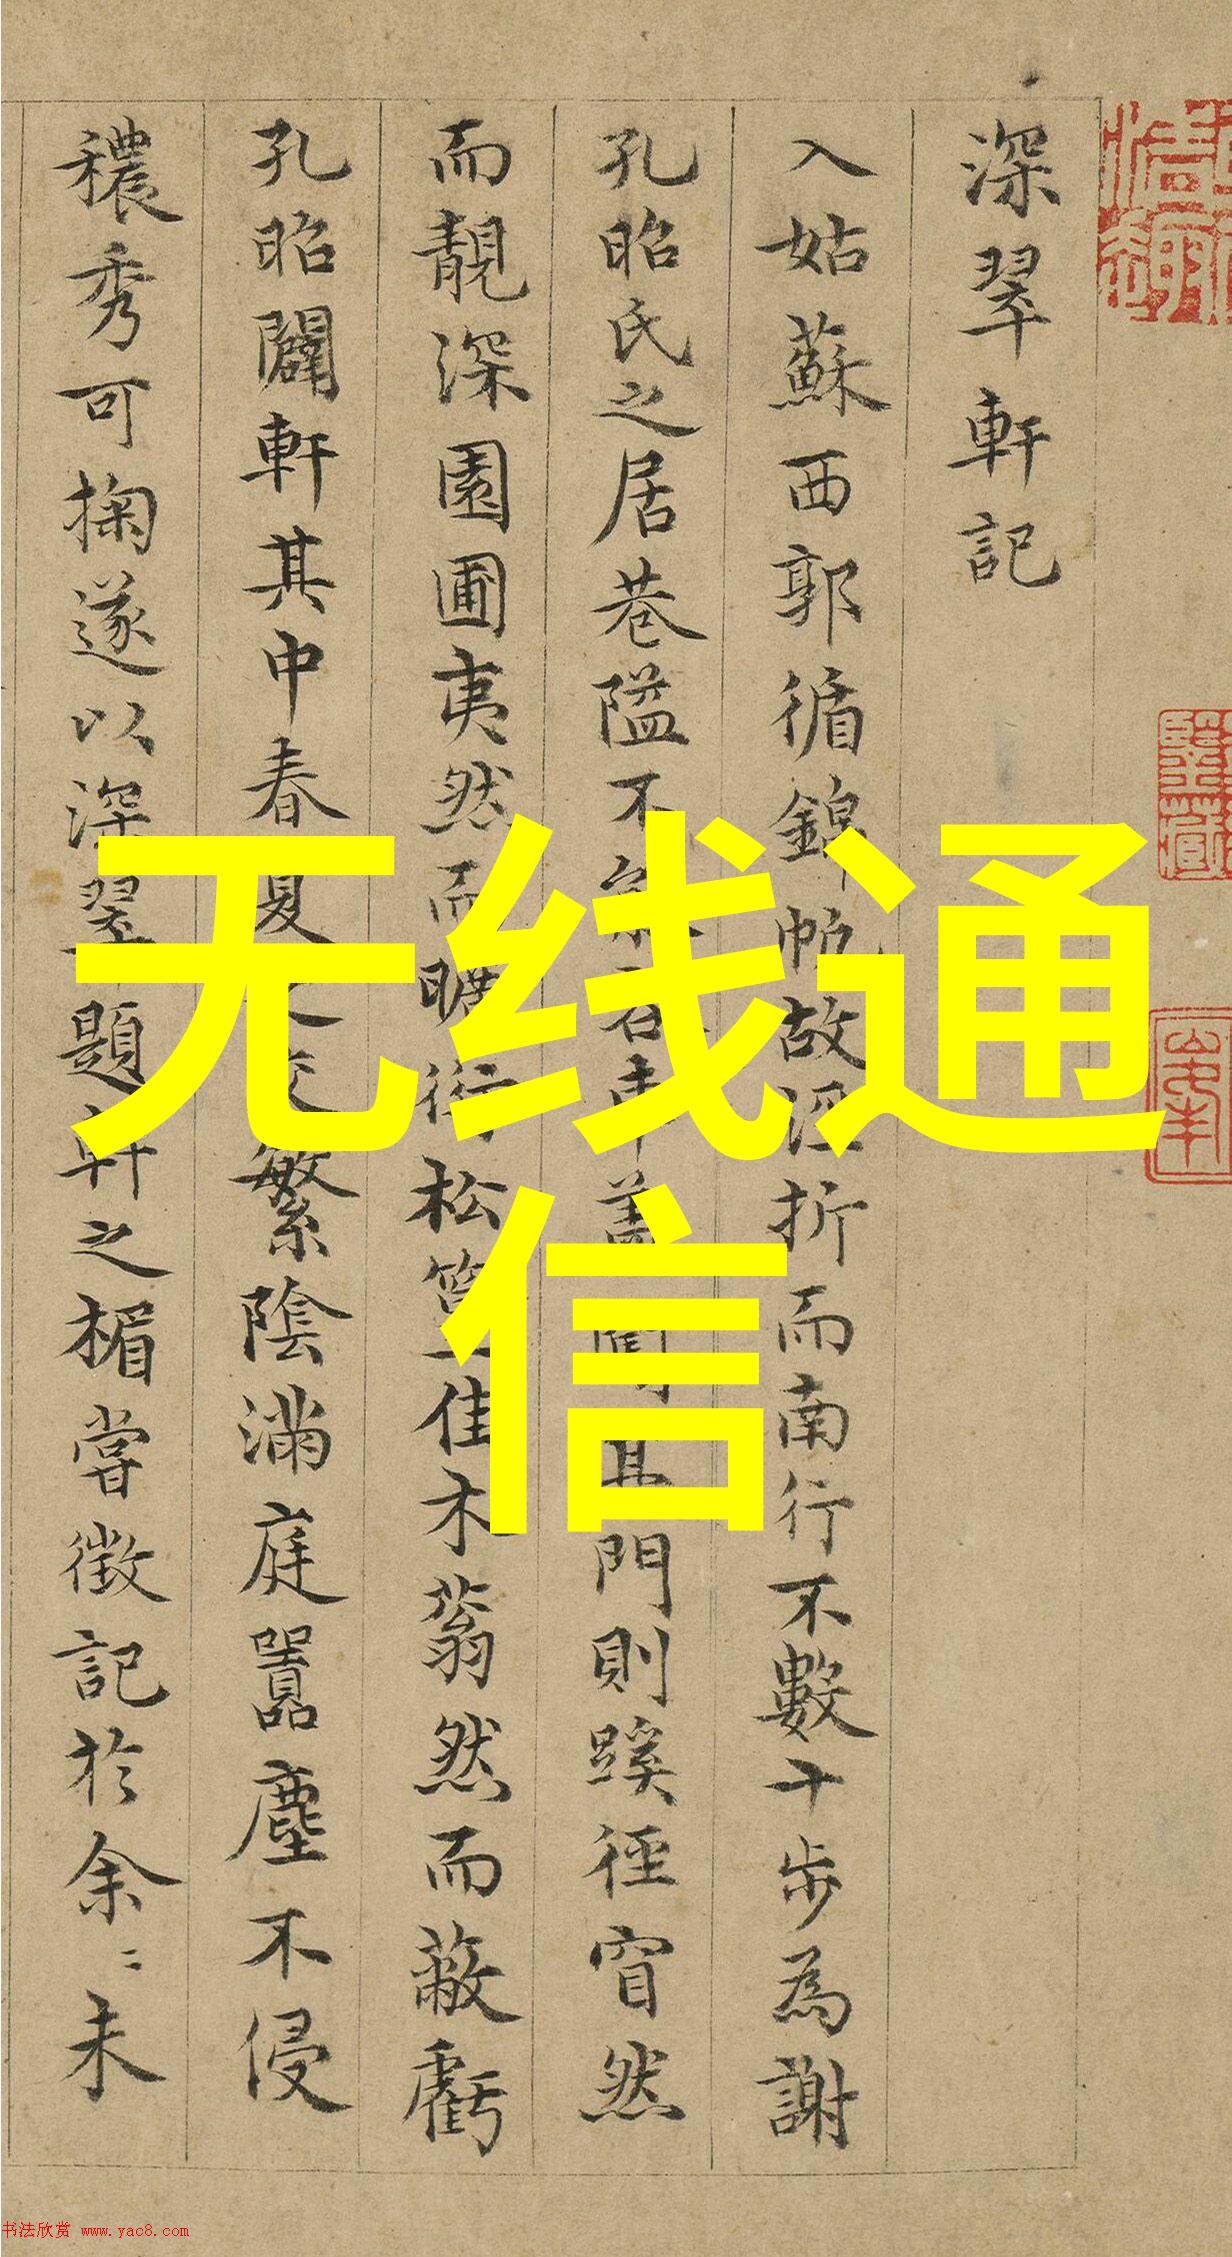 深翠軒記
入姑蘇西郭循錦帆故涇折而南行不數十步為謝
孔昭氏之居巷隘不門則蹊徑窅然
而靚深園圃夷然而曠街松筠佳木蓊然而蔽虧
孔昭闢軒其中春夏之交繁陰滿庭囂塵不侵
穠秀可掬遂以深翠題軒之楣嘗徵記於余〻未
无线通
信
书法欣赏 www.yac8.com